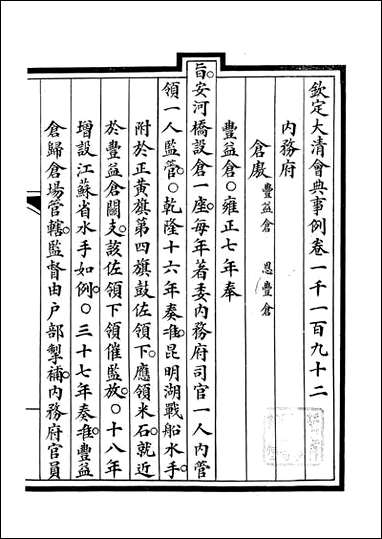 欽定大清會典事例卷一千一百九十二
內務府
倉廒豐益倉 恩豐倉
豐益倉○雍正七年奉
旨安河橋設倉一座每年著委內務府司官一人內管
領一人監管○乾隆十六年奏准昆明湖戰船水手
附於正黃旗第四旗鼓佐領下應領米石就近
於豐益倉關支該佐領下領催監放○十八年
增設江蘇省水手如例○三十七年奏准豐益
倉歸倉場管轄監督由戶部掣補內務府官員